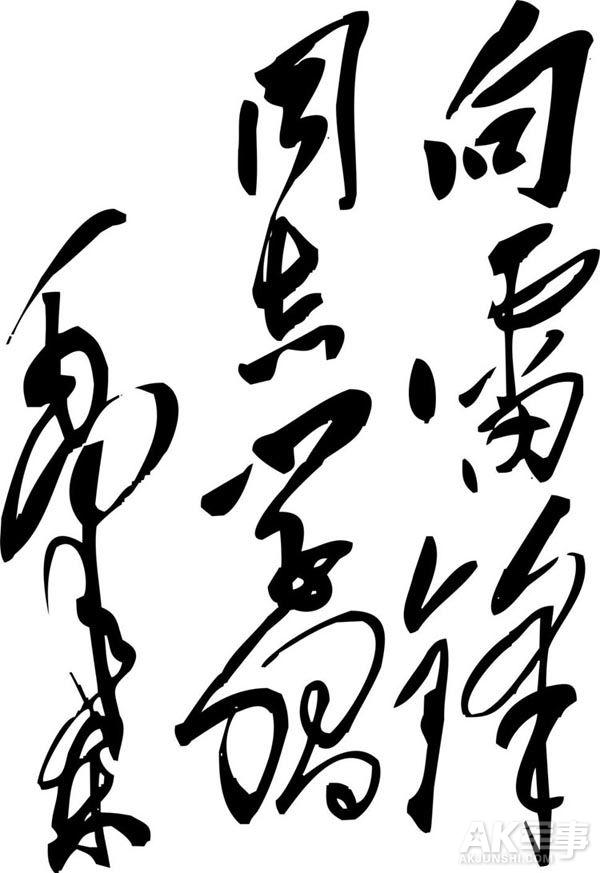 向雷锋
同志学习
毛泽东
AK军事
AKJUNSHI.COM